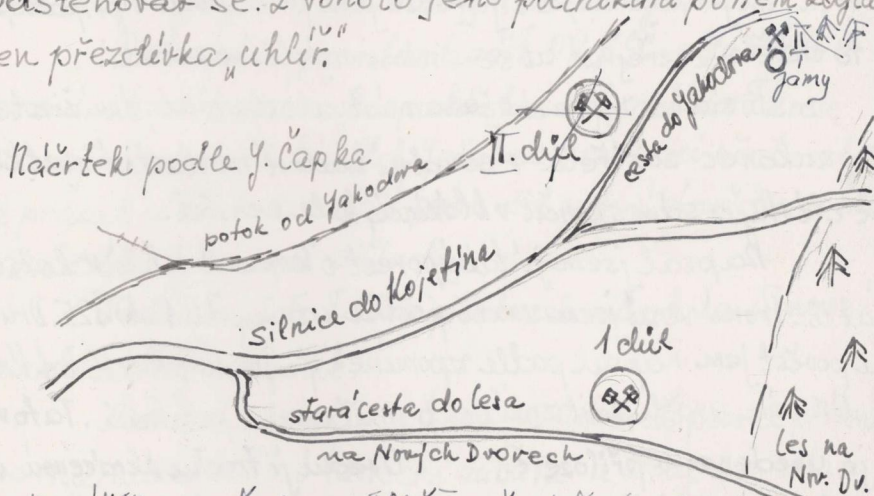 en přezdívka „uhlíř“
Náčrtek podle J. Čapka
potok od Jahodova
II důl
cesta do Jahodova
II
Jamy
silnice do Kojetína
I důl
stará cesta do lesa
na Nových Dvorech
Les na
Nov. Dv.